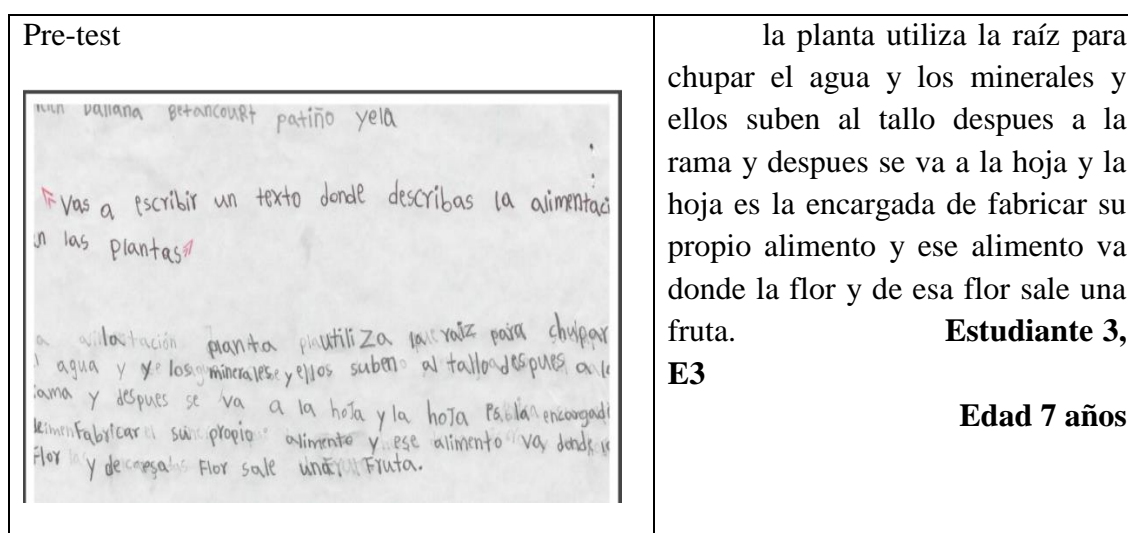 Pre-test
Betancourt patiño yela
Vas a escribir un texto donde describas la alimentaci
n las plantas
planta utiliza la raiz para chupar
agua y los minerales y ellos suben al tallo despues a la
rama y despues se va a la hoja y la hoja es la encargad
fabricar su propio alimento y ese alimento va donde
Flor y de esa Flor sale una Fruta.
la planta utiliza la raíz para
chupar el agua y los minerales y
ellos suben al tallo despues a la
rama y despues se va a la hoja y la
hoja es la encargada de fabricar su
propio alimento y ese alimento va
donde la flor y de esa flor sale una
fruta. Estudiante 3,
E3
Edad 7 años